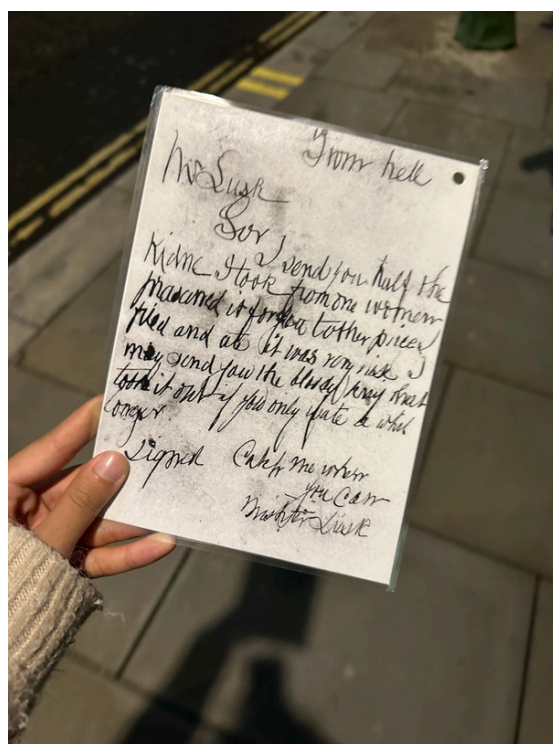 From hell
Mr Lusk
Sor
I send you half the
Kidne I took from one women
prasarved it for you tother piece I
fried and ate it was very nise I
may send you the bloody knif that
took it out if you only wate a whil
longer.
Signed Catch me when
you can
Mishter Lusk